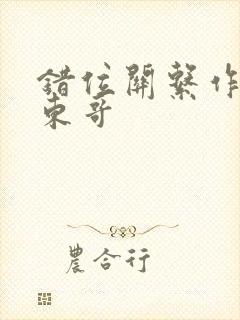 錯位關繫作
東哥
農合行